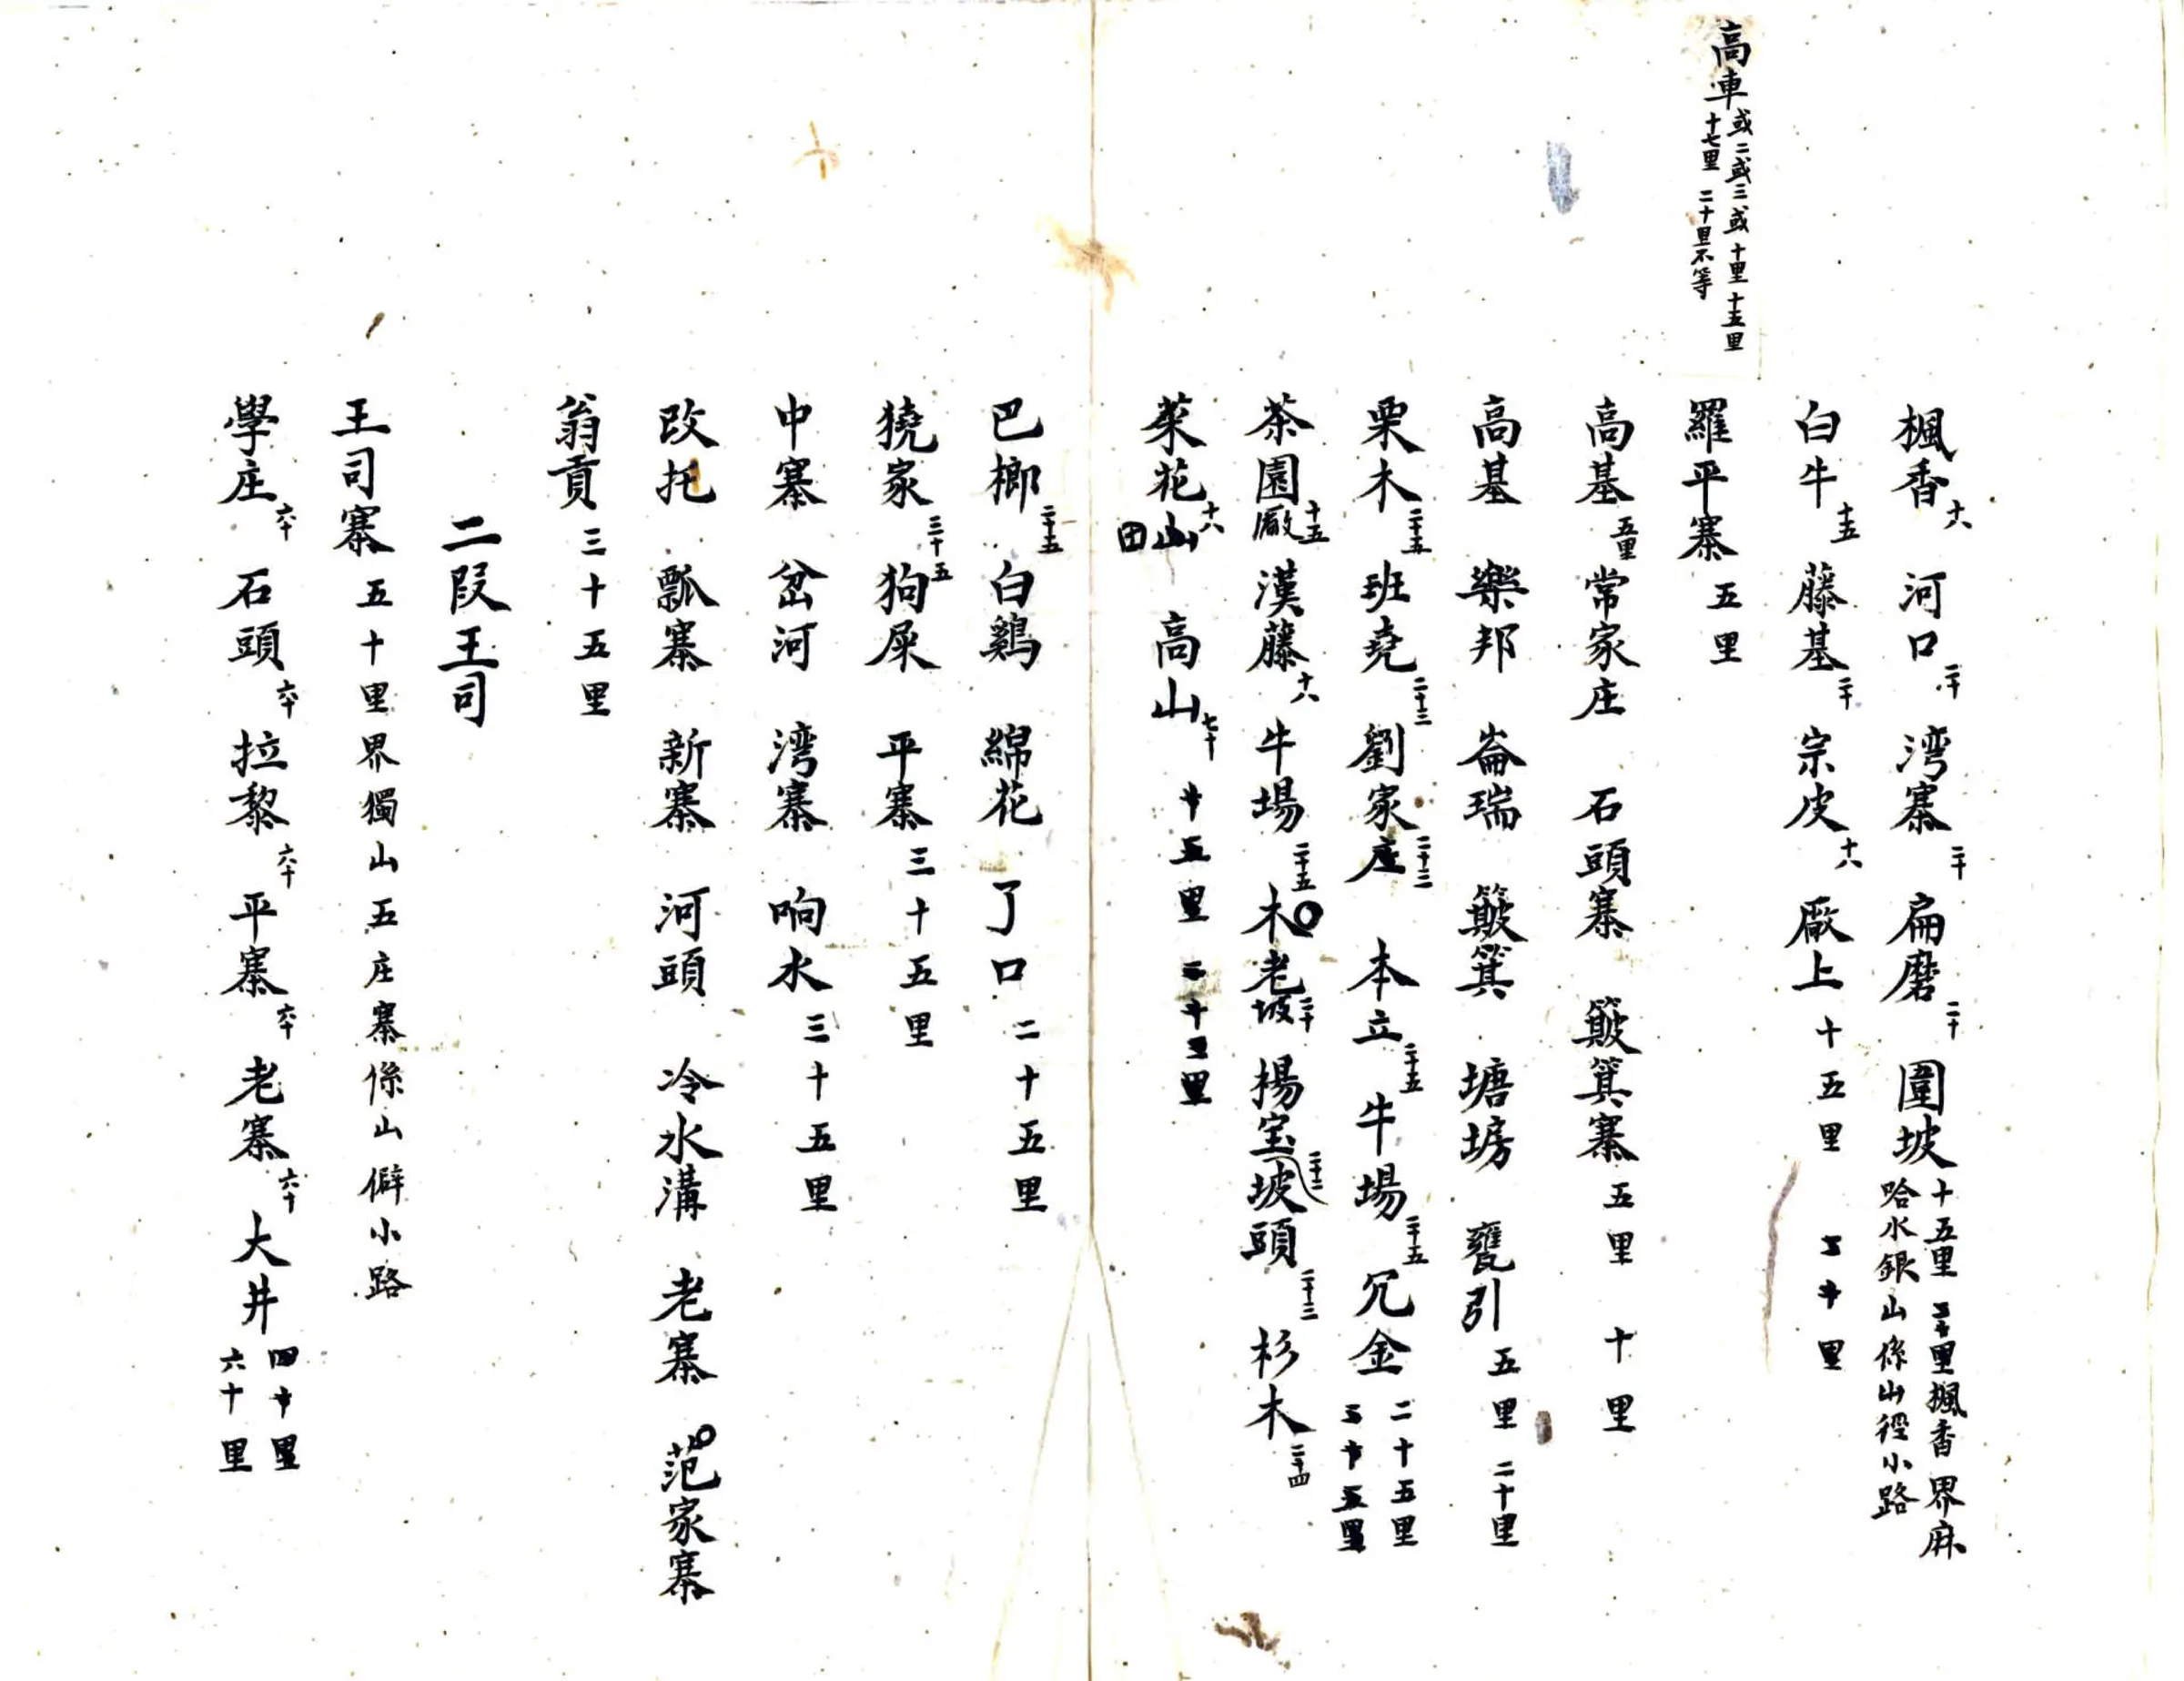 高車或二或三或十里十五里
十七里二十里不等
楓香十八河口二十湾寨二十扁磨二十圍坡十五里二十里楓香界麻
哈水銀山係山徑小路
白牛十五藤基二十宗皮十八厰上十五里二十里
羅平寨五里
高基五里常家庄石頭寨簸箕寨五里十里
高基樂邦崙瑞簸箕塘塝甕引五里二十里
栗木二十五班堯二十三劉家庄二十三本立二十五牛場二十五冗金二十五里
三十五里
茶園厰十五漢藤十八牛場二十五木老坡二十揚宝坡頭二十三杉木二十四
菜花山十八田高山七十十五里二十里
巴榔二十五白鷄綿花了口二十五里
獟家三十五狗屎平寨三十五里
中寨岔河湾寨响水三十五里
改托瓢寨新寨河頭冷水溝老寨范家寨
翁貢三十五里
二段王司
王司寨五十里界獨山五庄寨係山僻小路
學庄六十石頭六十拉黎六十平寨六十老寨六十大井四十里
六十里